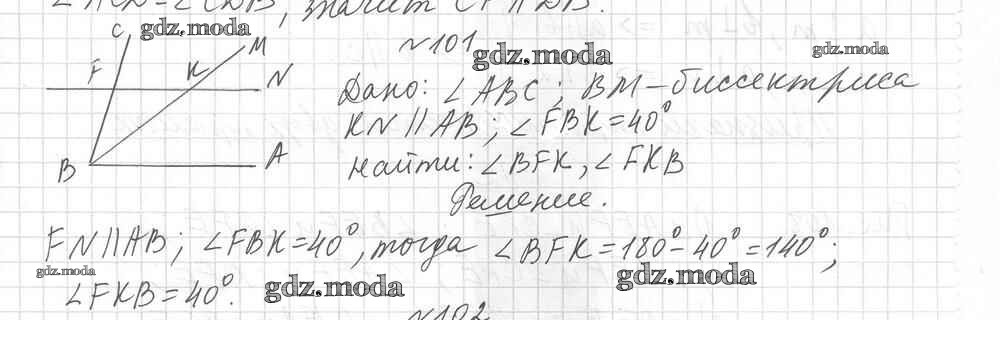 ∠ACD = ∠CDB, значит CF || DB.
C
gdz.moda
M
F
K
N
B
A
№101
gdz.moda
gdz.moda
Дано: ∠ABC; BM – биссектриса
KN || AB; ∠FBK = 40°
Найти: ∠BFK, ∠FKB
Решение.
FN || AB; ∠FBK = 40°, тогда ∠BFK = 180° - 40° = 140°;
gdz.moda
∠FKB = 40°.
gdz.moda
gdz.moda
№102